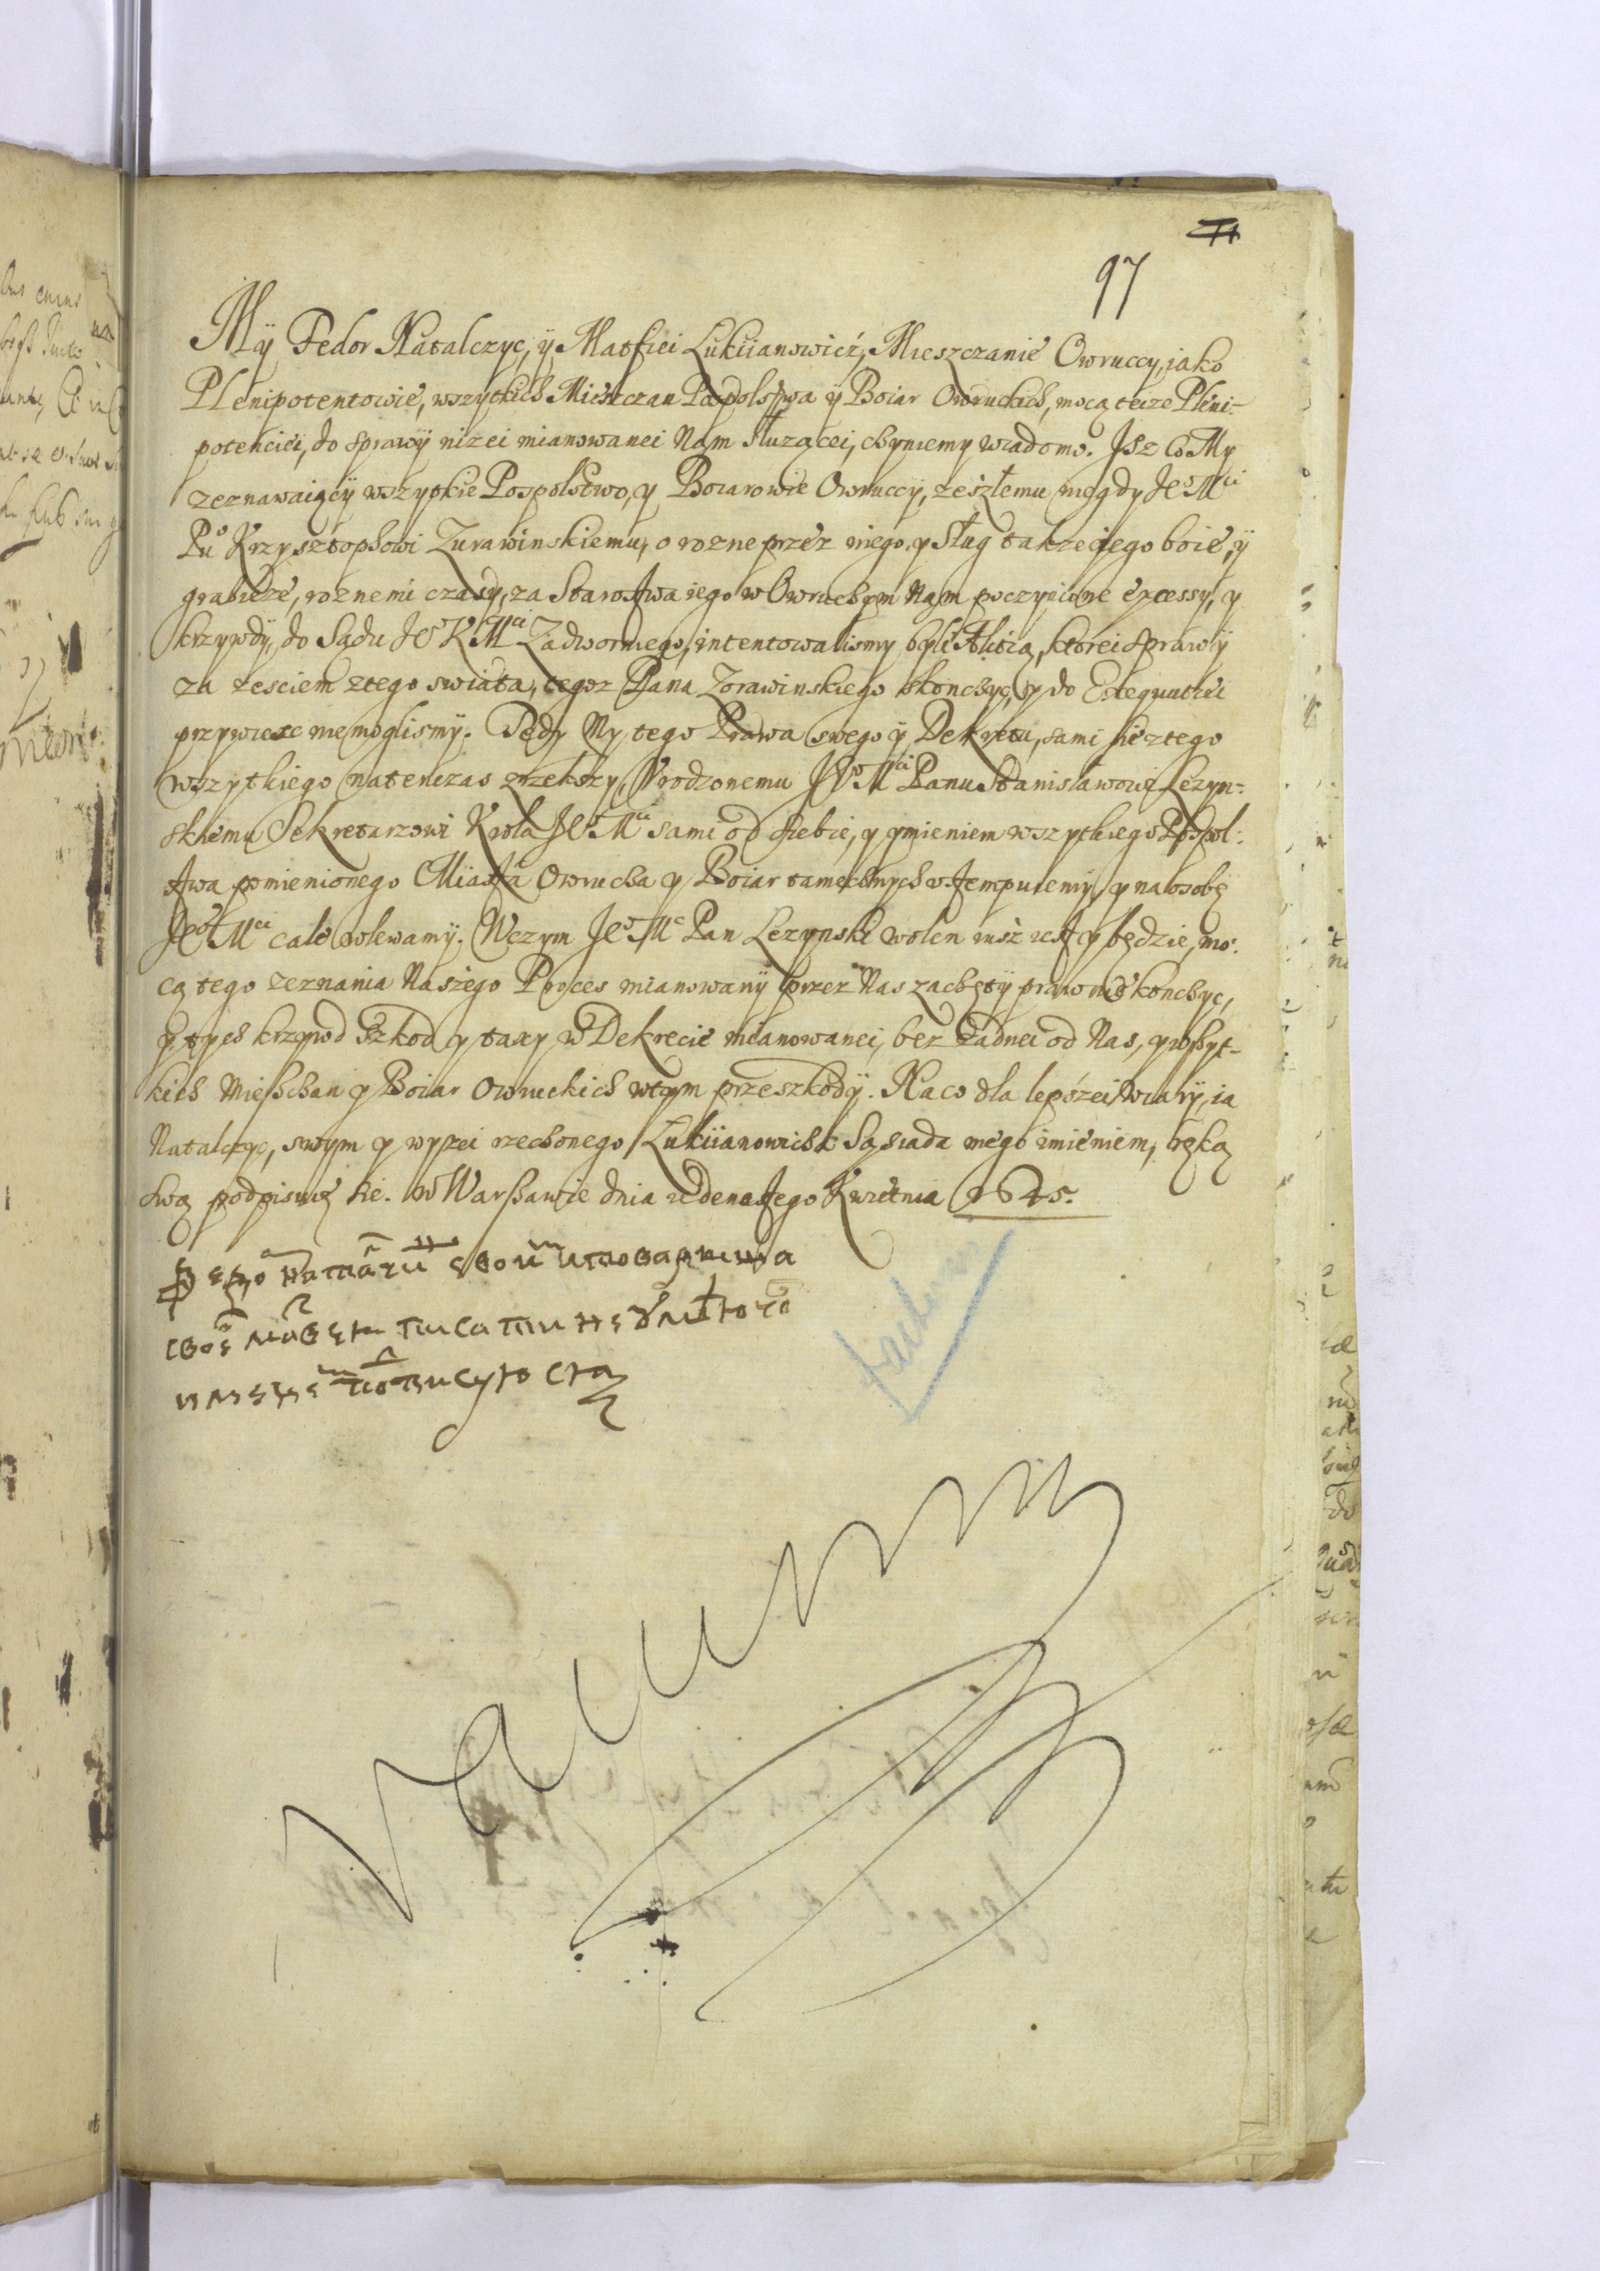 97
My Fedor Natalczyc, ÿ Matfiei Lukiianowicz, Mieszczanie Owruccy, jako
Plenipotentowie, wszytkich Mieszczan Pospolstwa ÿ Boiar Owruckich, mocą teize Pleni-
potenciei, do sprawÿ nizei mianowanei Nam służącei, czyniemy wiadomo. Isz Co My
zeznawaiącÿ wszytkie Pospolstwo, y Boiarowie Owruccÿ, zeszłemu niegdy Je° Mci
Pu° Krzysztophowi Zurawinskiemu, o rozne przez niego, y sług takze iego boie, ÿ
grabieze, roznemi czasy, za Starostwa iego w Owruchym Nam poczynione excessy, y
krzywdÿ, do Sądu Je° K Mci Zadwornego, intentowalismy byli Akcią, ktorei sprawÿ
za zesciem z tego swiata, tegoz Pana Zorawinskiego skonczyc, y do Exequutiei
przywiesc nie moglismÿ. Tedy My tego Prawa swego ÿ Dekretu, sami sie z tego
wszytkiego natenczas zrzekszy, Vrodzonemu Je° Mci Panu Stanisławowi Lezyn-
skiemu Sekretarzowi Krola Je° Mci sami od siebie, y ymieniem wszytkiego Pospol-
stwa pomienionego Miasta Owrucha y Boiar tamecznych wstempuiemÿ, y na osobę
Je° Mci cale wlewamÿ. W czym Je° Mc Pan Lezynski wolen iusz iest y będzie, mo-
cą tego zeznania Naszego Proces mianowanÿ przez Nas zaczętÿ prawnie konczyc,
y tych krzywd szkod y taxy w Dekrecie mianowanei, bez zadnei od Nas, y wszyt-
kich Mieszczan y Boiar Owruckich w tym przeszkodÿ. Na co dla lepszei wiarÿ, ia
Natalczyc, swym y wyszei rzeczonego Lukiianowicza Sąsiada mego imieniem, ręką
swą podpisuię sie. W Warszawie dnia iedenastego Kwietnia 1645.
своии товариша
писати не умѣючо
именем подписую ся
vacuum